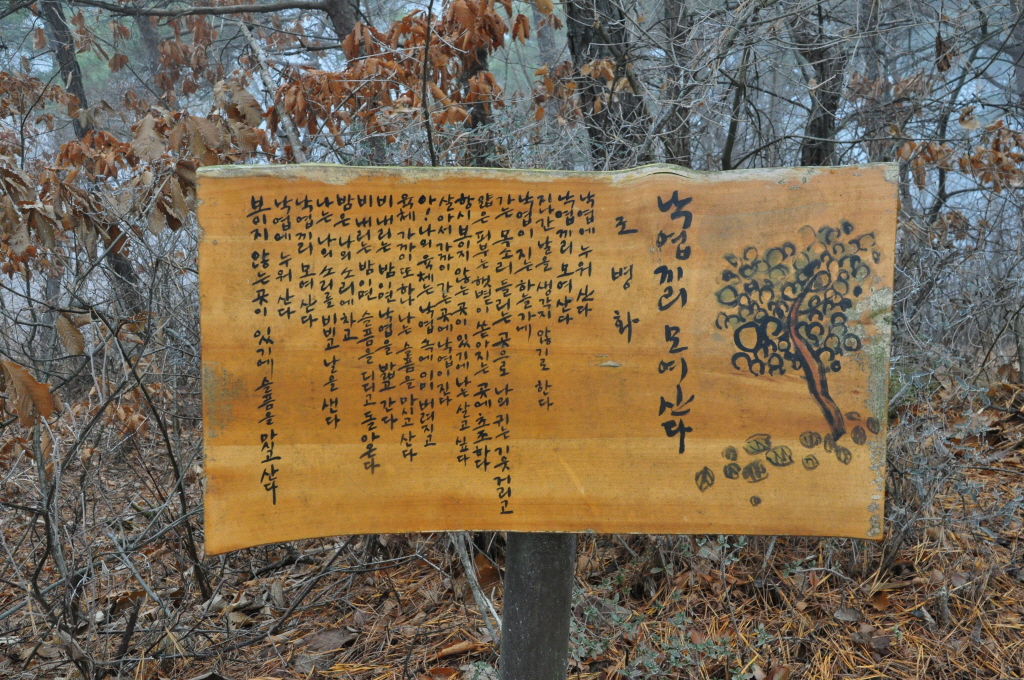 낙엽끼리 모여 산다
조 병 화
낙엽에 누워 산다
낙엽끼리 모여 산다
지나간 날을 생각지 않기로 한다
낙엽이 지는 하늘가에
가는 목소리 들리는 곳으로 나의 귀는 기웃거리고
얇은 피부는 햇볕이 쏟아지는 곳에 초조하다
항시 보이지 않는 곳이 있기에 나는 살고 싶다
살아서 가까이 가는 곳에 낙엽이 진다
아! 나의 육체는 낙엽 속에 이미 버려지고
육체 가까이 또 하나 나는 슬픔을 마시고 산다
비 내리는 밤이면 낙엽을 밟고 간다
비 내리는 밤이면 슬픔을 디디고 돌아온다
밤은 나의 소리에 차고
나는 나의 소리를 비비고 날을 샌다
낙엽끼리 모여 산다
낙엽에 누워 산다
보이지 않는 곳이 있기에 슬픔을 마시고 산다